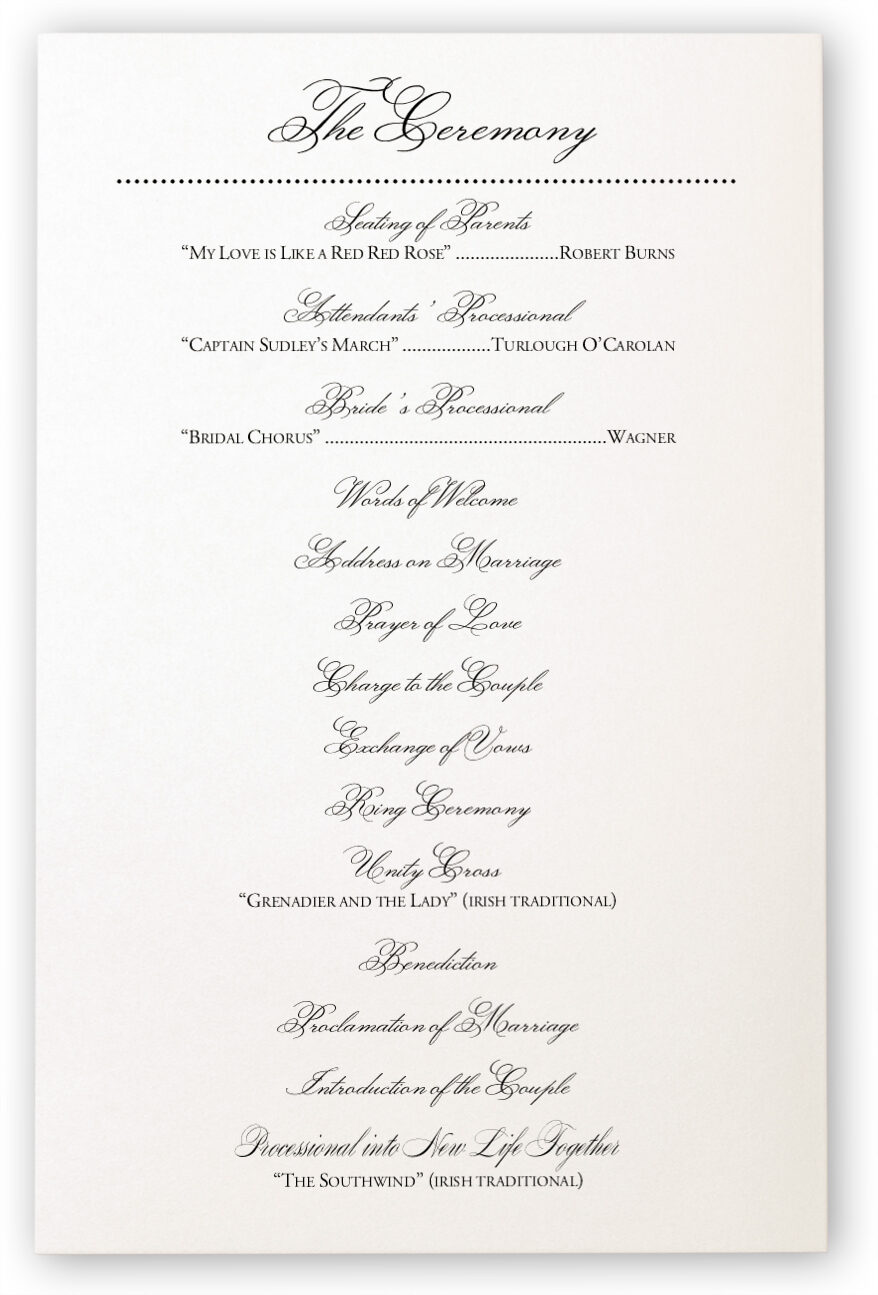 The Ceremony
Seating of Parents
“My Love is Like a Red Red Rose” .....................Robert Burns
Attendants’ Processional
“Captain Sudley’s March” ..................Turlough O’Carolan
Bride’s Processional
“Bridal Chorus” .........................................................Wagner
Words of Welcome
Address on Marriage
Prayer of Love
Charge to the Couple
Exchange of Vows
Ring Ceremony
Unity Cross
“Grenadier and the Lady” (irish traditional)
Benediction
Proclamation of Marriage
Introduction of the Couple
Processional into New Life Together
“The Southwind” (irish traditional)